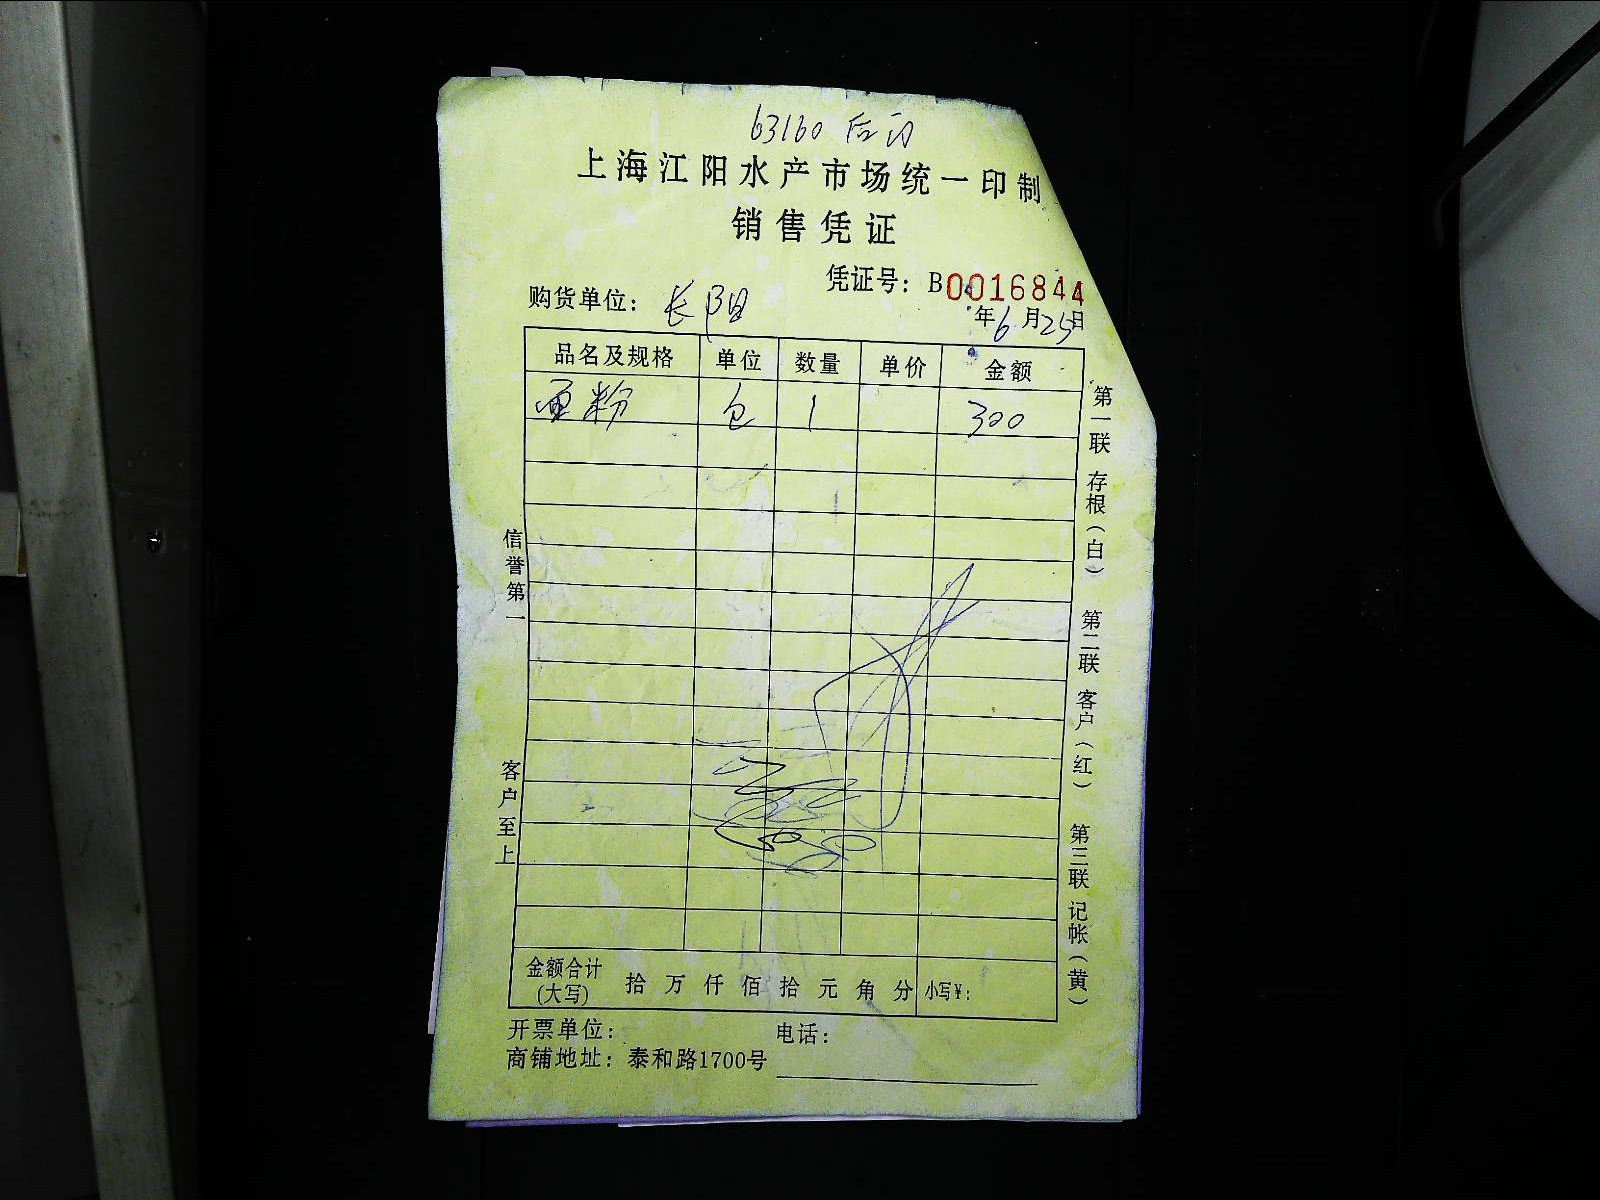 63160 后门
上海江阳水产市场统一印制
销售凭证
凭证号：B0016844
购货单位：长阳
年6月25日
品名及规格 单位 数量 单价 金额
面粉 包 1 300
信誉第一
客户至上
第一联 存根（白） 第二联 客户（红） 第三联 记帐（黄）
金额合计(大写) 拾 万 仟 佰 拾 元 角 分 小写¥：
开票单位： 电话：
商铺地址：泰和路1700号